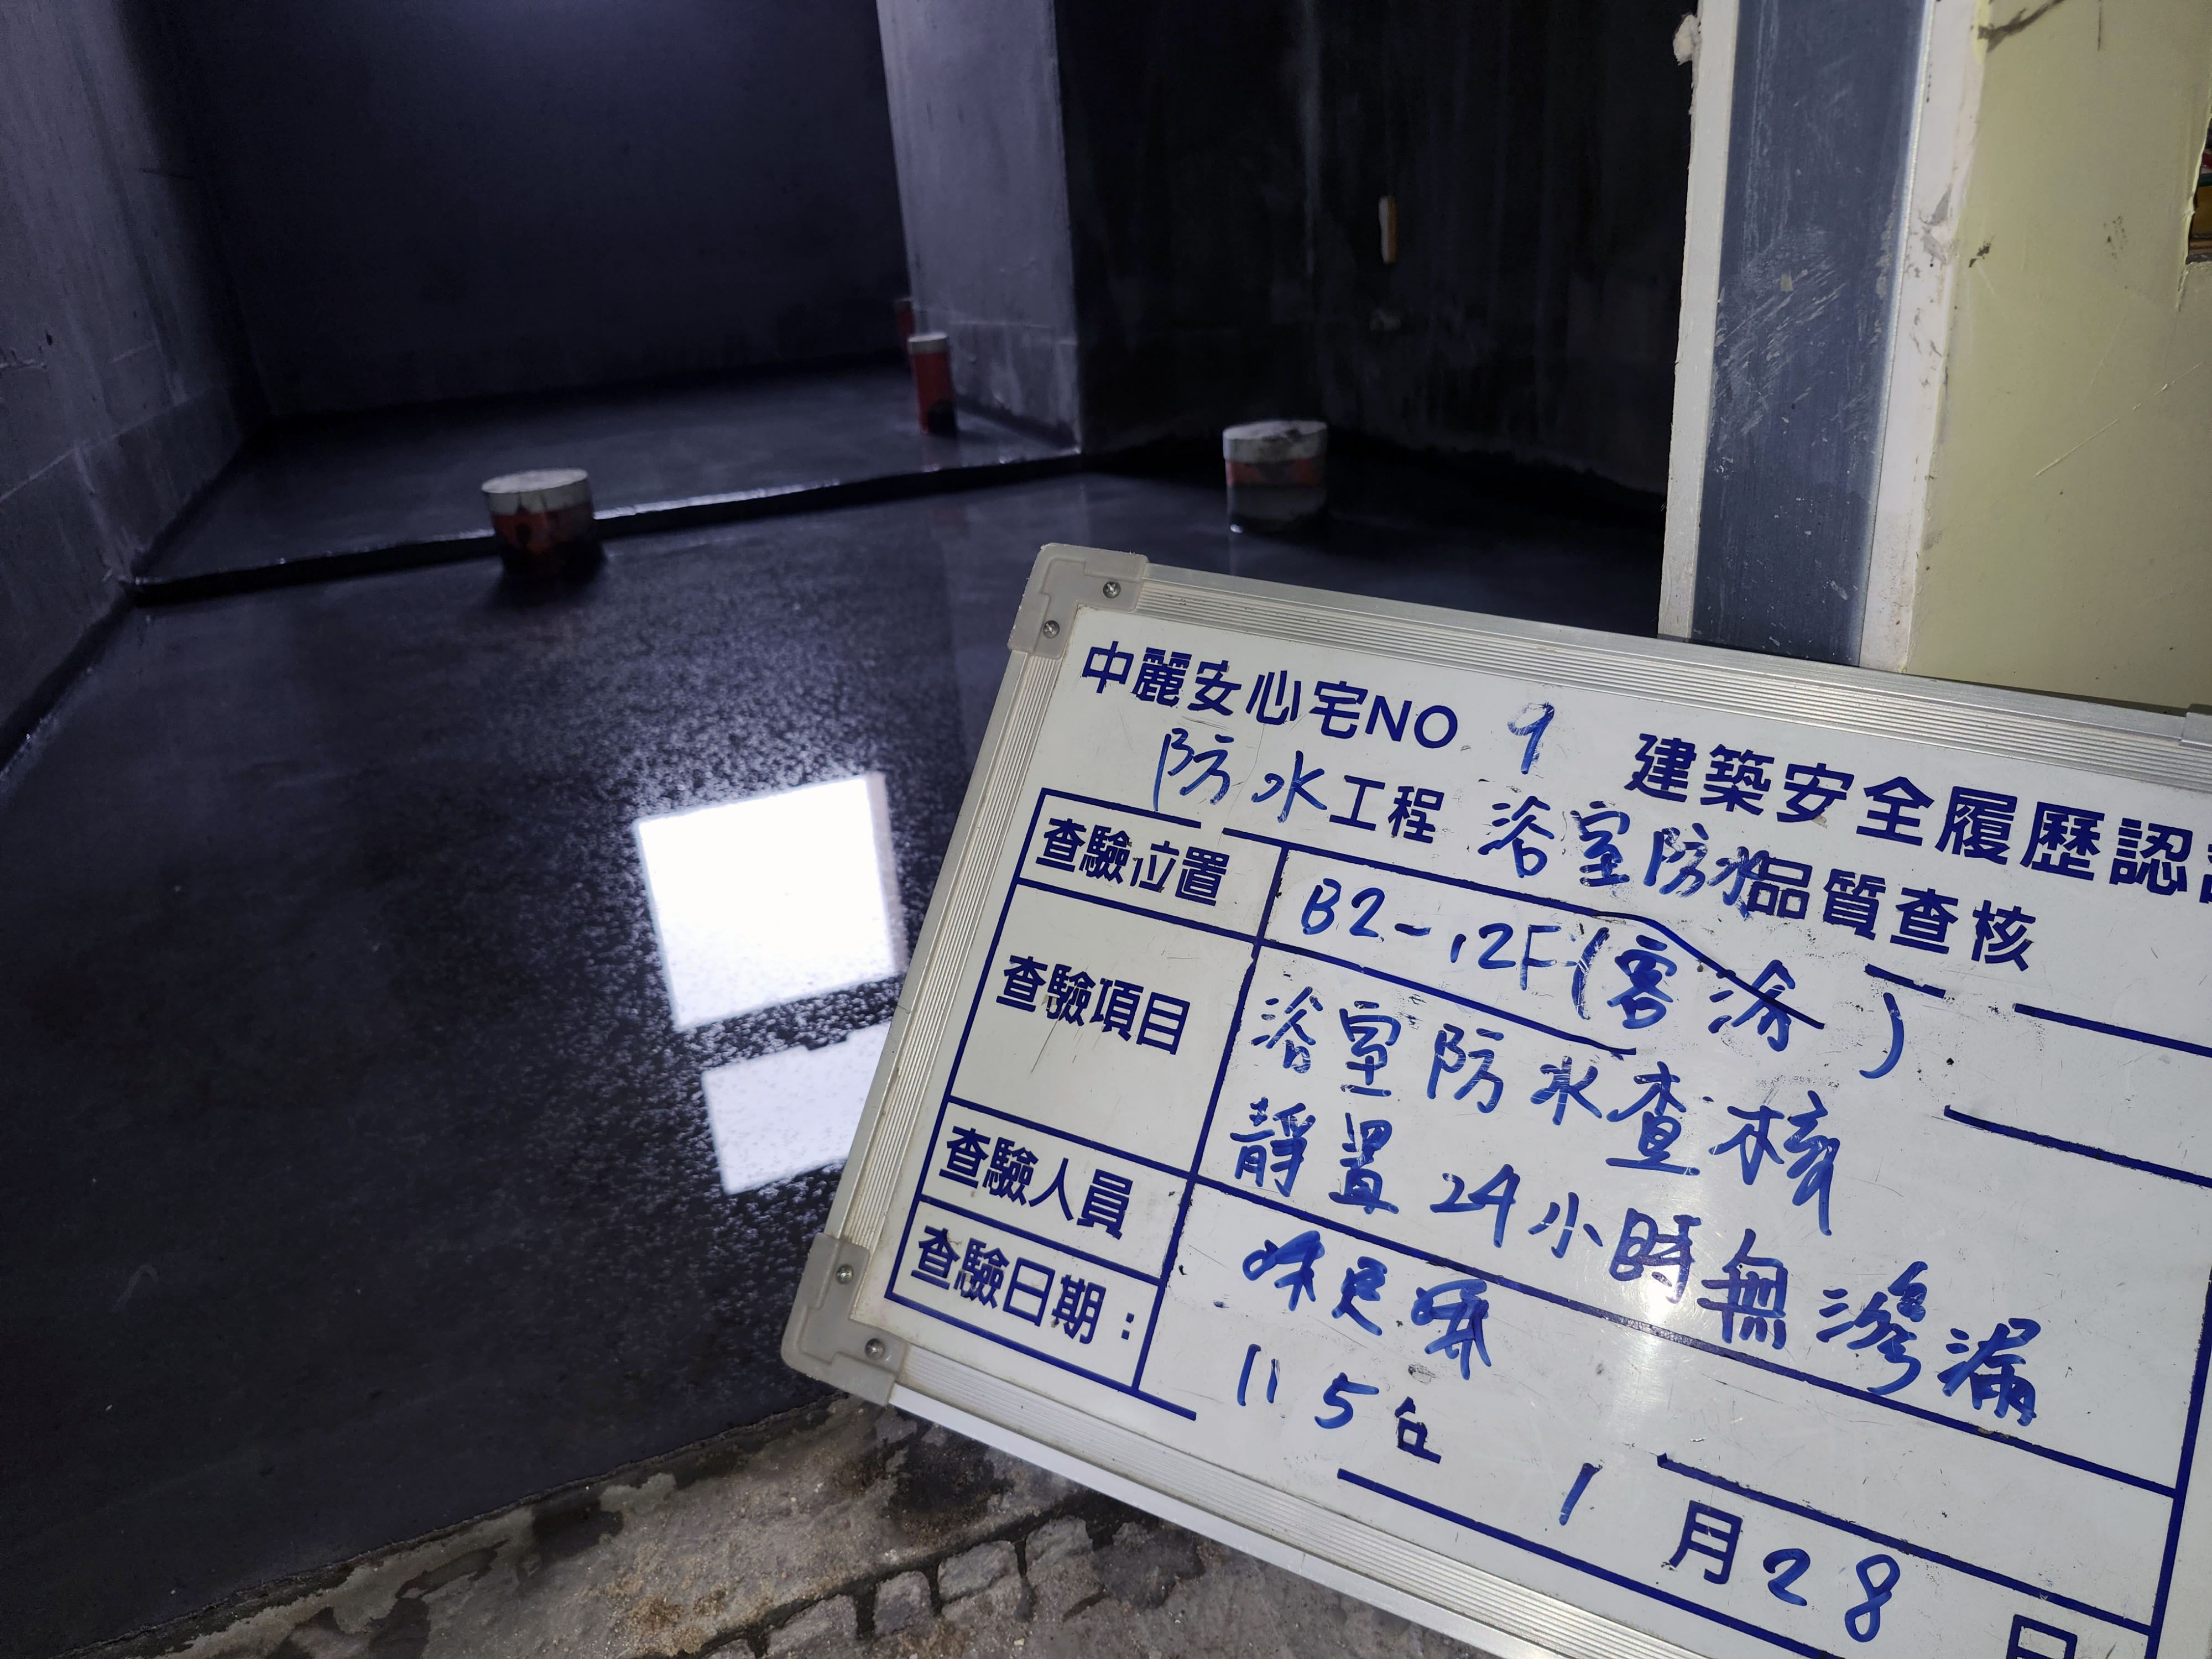 中麗安心宅NO 9 建築安全履歷認
防水工程 浴室防水品質查核
查驗位置 B2-12F(客浴)
查驗項目 浴室防水查核
靜置24小時無滲漏
查驗人員
查驗日期: 115年 1月28日